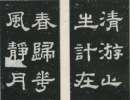 清游山
生計在
春歸花
風靜月